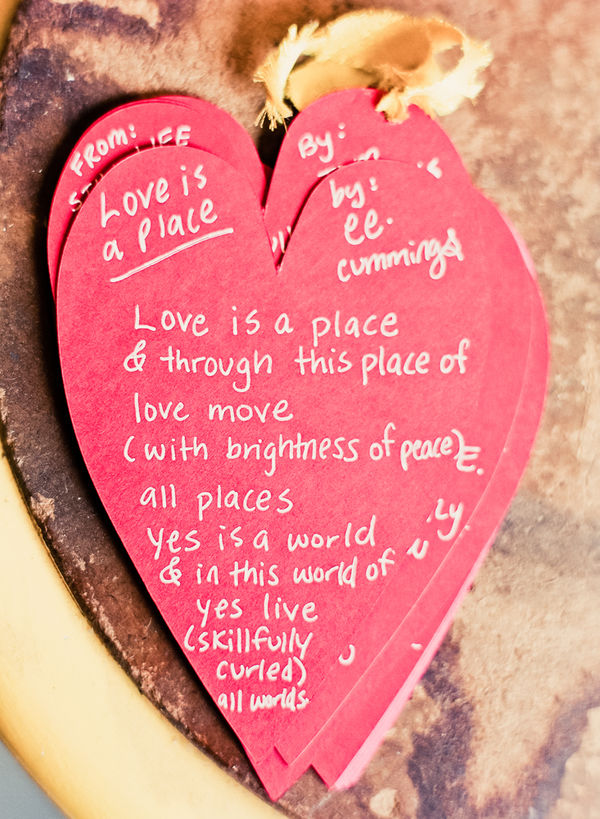 FROM:
LIFE
By:
Love is
a Place
by:
ee.
cummings
Love is a place
& through this place of
love move
(with brightness of peace)
all places
yes is a world
& in this world of
yes live
(skillfully
curled)
all worlds
E.
ly.